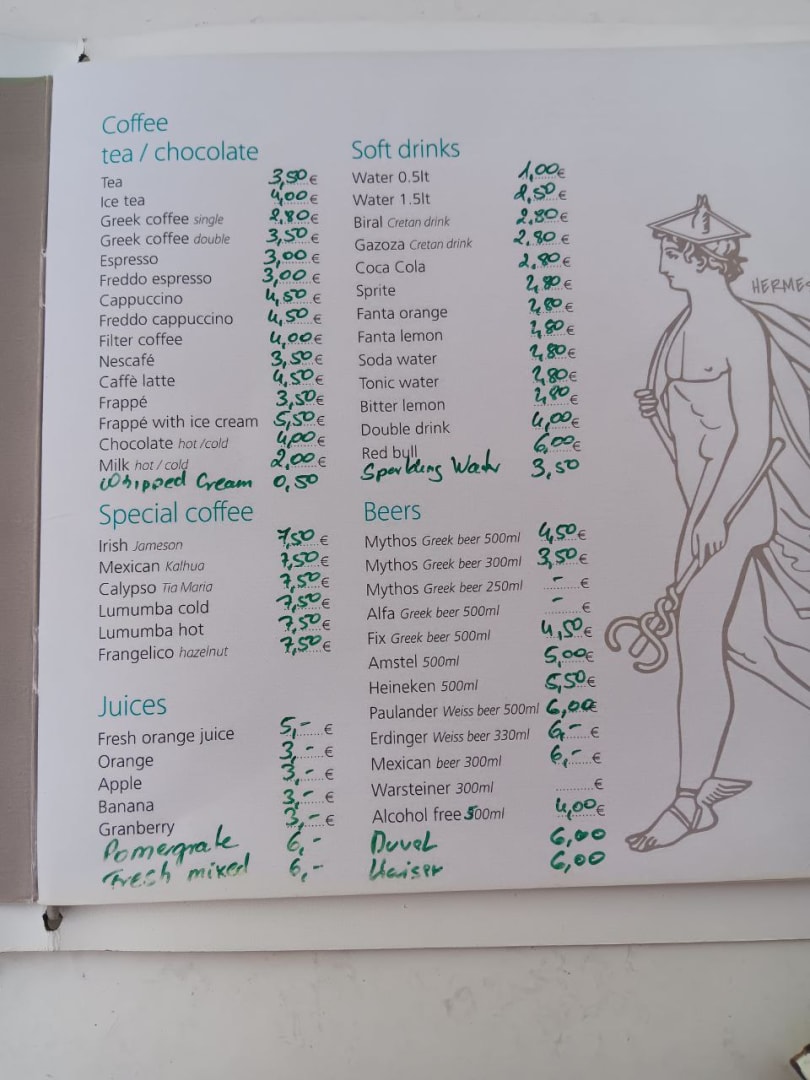 Coffee
tea / chocolate
Tea 3,50 €
Ice tea 4,00 €
Greek coffee single 2,80 €
Greek coffee double 3,50 €
Espresso 3,00 €
Freddo espresso 3,00 €
Cappuccino 4,50 €
Freddo cappuccino 4,50 €
Filter coffee 4,00 €
Nescafé 3,50 €
Caffè latte 4,50 €
Frappé 3,50 €
Frappé with ice cream 5,50 €
Chocolate hot /cold 4,00 €
Milk hot / cold 2,00 €
Whipped Cream 0,50
Special coffee
Irish Jameson 7,50 €
Mexican Kalhua 7,50 €
Calypso Tia Maria 7,50 €
Lumumba cold 7,50 €
Lumumba hot 7,50 €
Frangelico hazelnut 7,50 €
Juices
Fresh orange juice 5,- €
Orange 3,- €
Apple 3,- €
Banana 3,- €
Granberry 3,- €
Pomergrate 6,-
Fresh mixed 6,-
Soft drinks
Water 0.5lt 1,00 €
Water 1.5lt 2,50 €
Biral Cretan drink 2,80 €
Gazoza Cretan drink 2,80 €
Coca Cola 2,80 €
Sprite 2,80 €
Fanta orange 2,80 €
Fanta lemon 2,80 €
Soda water 2,80 €
Tonic water 2,80 €
Bitter lemon 2,80 €
Double drink 4,00 €
Red bull 6,00 €
Sparkling Water 3,50
Beers
Mythos Greek beer 500ml 4,50 €
Mythos Greek beer 300ml 3,50 €
Mythos Greek beer 250ml - €
Alfa Greek beer 500ml - €
Fix Greek beer 500ml 4,50 €
Amstel 500ml 5,00 €
Heineken 500ml 5,50 €
Paulander Weiss beer 500ml 6,00 €
Erdinger Weiss beer 330ml 6,- €
Mexican beer 300ml 6,- €
Warsteiner 300ml €
Alcohol free 500ml 4,00 €
Duvel 6,00
Kaiser 6,00